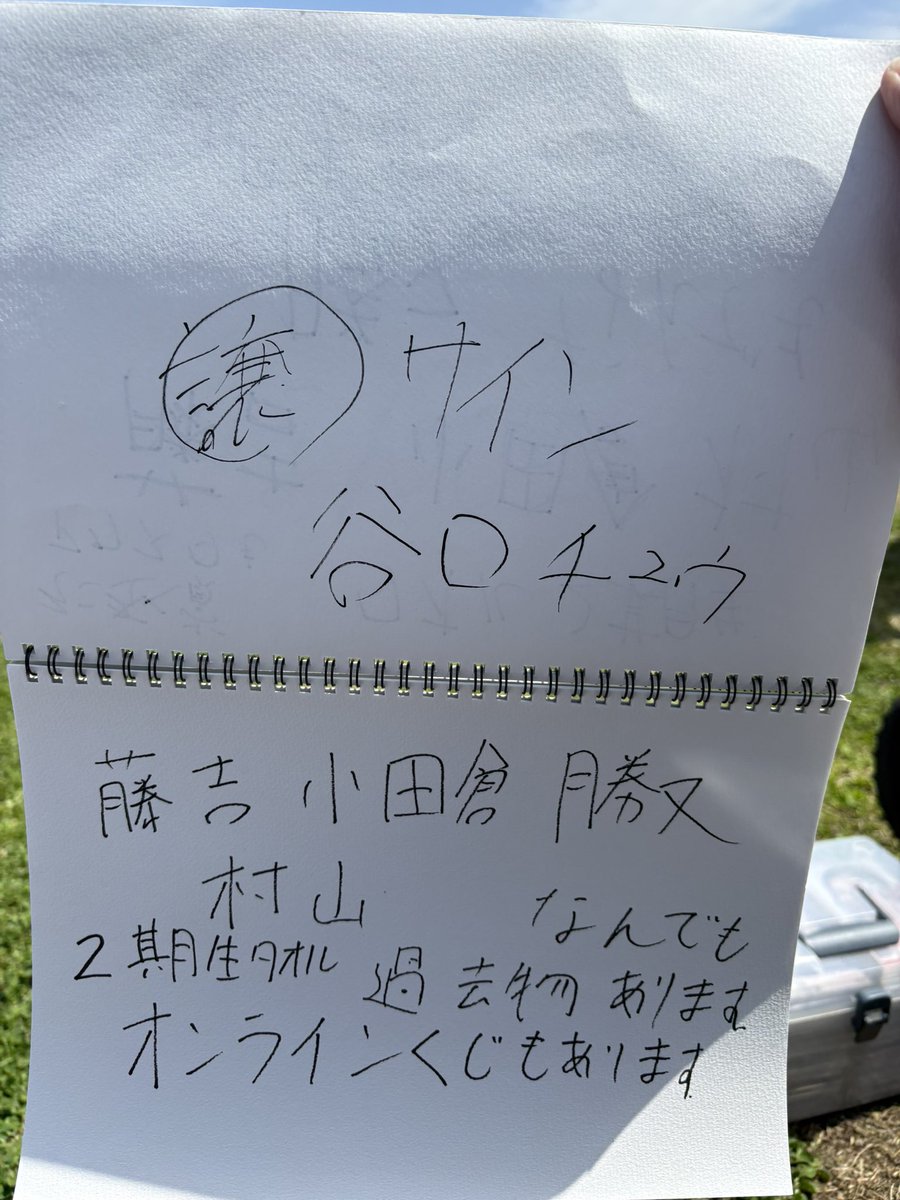 譲 サイン
谷口 チュウ
藤吉 小田倉 勝又
村山 なんでも
2期生タオル 過去物 あります
オンラインくじもあります